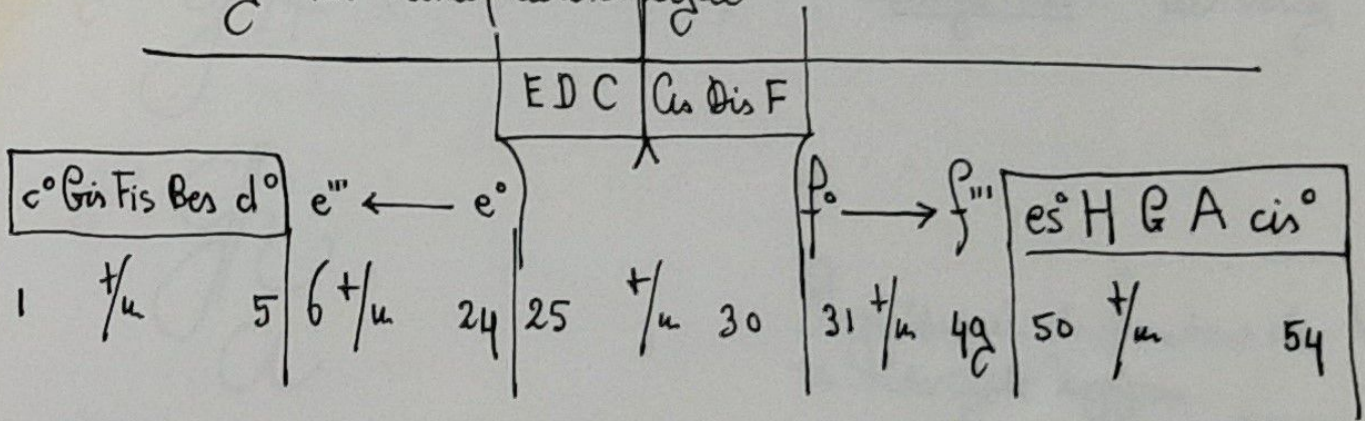 E D C Cis Dis F
c° Gis Fis Bes d° e''' ← e° f° → f''' es° H G A cis°
1 t/m 5 6 t/m 24 25 t/m 30 31 t/m 49 50 t/m 54